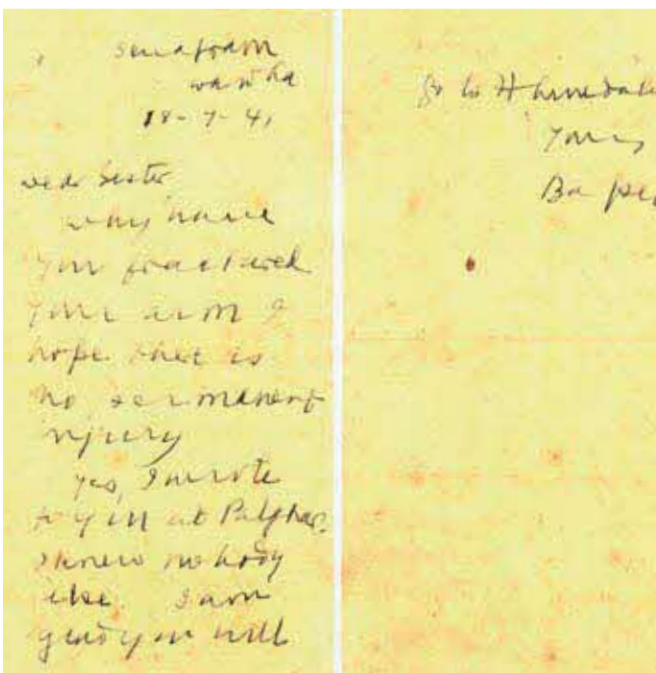 wardha
18-7-41
Dear sister
why have
you fractured
your arm I
hope there is
no permanent
injury
yes, I wrote
to you at Palghar.
I knew nobody
else. I am
glad you will
go to
yours
Bapu